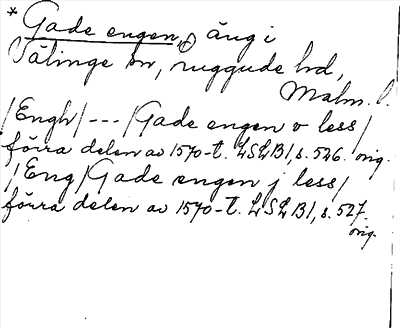 * Gade engen, äng i
Välinge sn, Luggude hd,
Malm. l.
/Engh/ --- /Gade engen v less/
förra delen av 1570-t. LSLB1, s. 526. orig.
/Eng/Gade engen j less/
förra delen av 1570-t. LSLB1, s. 527.
orig.